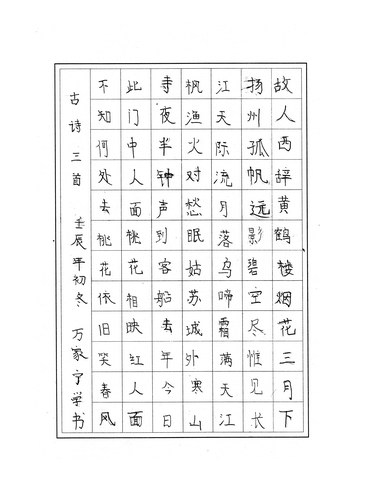 故人西辞黄鹤楼烟花三月下
扬州孤帆远影碧空尽惟见长
江天际流月落乌啼霜满天江
枫渔火对愁眠姑苏城外寒山
寺夜半钟声到客船去年今日
此门中人面桃花相映红人面
不知何处去桃花依旧笑春风
古诗三首 壬辰年初冬 万家宁学书